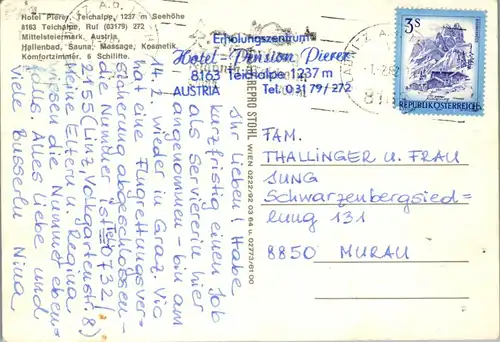 Hotel Pierer, Teichalpe, 1237 m Seehöhe
8163 Teichalpe, Ruf (03179) 272
Mittelsteiermark, Austria.
Hallenbad, Sauna, Massage, Kosmetik,
Komfortzimmer. 6 Schilifte.
Erholungszentrum
Hotel-Pension Pierer
8163 Teichalpe 1237 m
AUSTRIA Tel. 03179/272
3S
REPUBLIK ÖSTERREICH
REPRO STOHL WIEN 0222/92 03 64 u. 02773/61 00
Ihr Lieben! Habe
kurzfristig einen Job
als Serviererin hier
angenommen - bin am
14.2 wieder in Graz. Vic
hat eine Flugrettungsver-
sicherung abgeschlossen -
die Nummer ist: 0732/
2155 (Linz, Volksgartenstr. 8)
Meine Eltern u. Regina
wissen die Nummer eben-
falls. Alles Liebe und
viele Busserln Nina
FAM.
THALLINGER U. FRAU
JUNG
Schwarzenbergsied=
lung 131
8850 MURAU